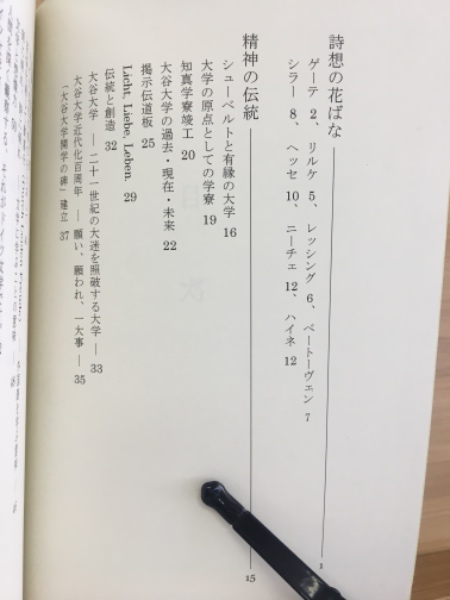 詩想の花ばな 1
ゲーテ 2、リルケ 5、レッシング 6、ベートーヴェン 7
シラー 8、ヘッセ 10、ニーチェ 12、ハイネ 12
精神の伝統 15
シューベルトと有縁の大学 16
大学の原点としての学寮 19
知真学寮竣工 20
大谷大学の過去・現在・未来 22
掲示伝道板 25
Licht, Liebe, Leben. 29
伝統と創造 32
大谷大学 ― 二十一世紀の大迷を照破する大学 ― 33
大谷大学近代化百周年 ― 願い、願われ、一大事 ― 35
「大谷大学開学の碑」建立 37